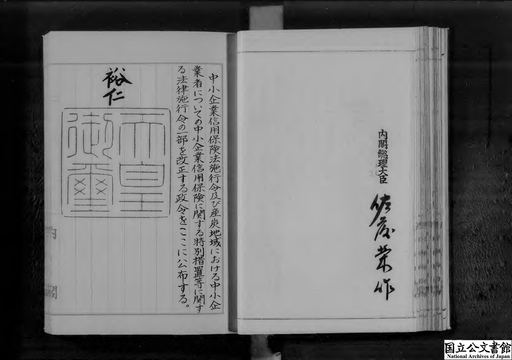 内閣総理大臣 佐藤榮作
中小企業信用保険法施行令及び産炭地域における中小企
業者についての中小企業信用保険に関する特別措置等に関す
る法律施行令の一部を改正する政令をここに公布する。
裕仁
天皇
御璽
国立公文書館
National Archives of Japan